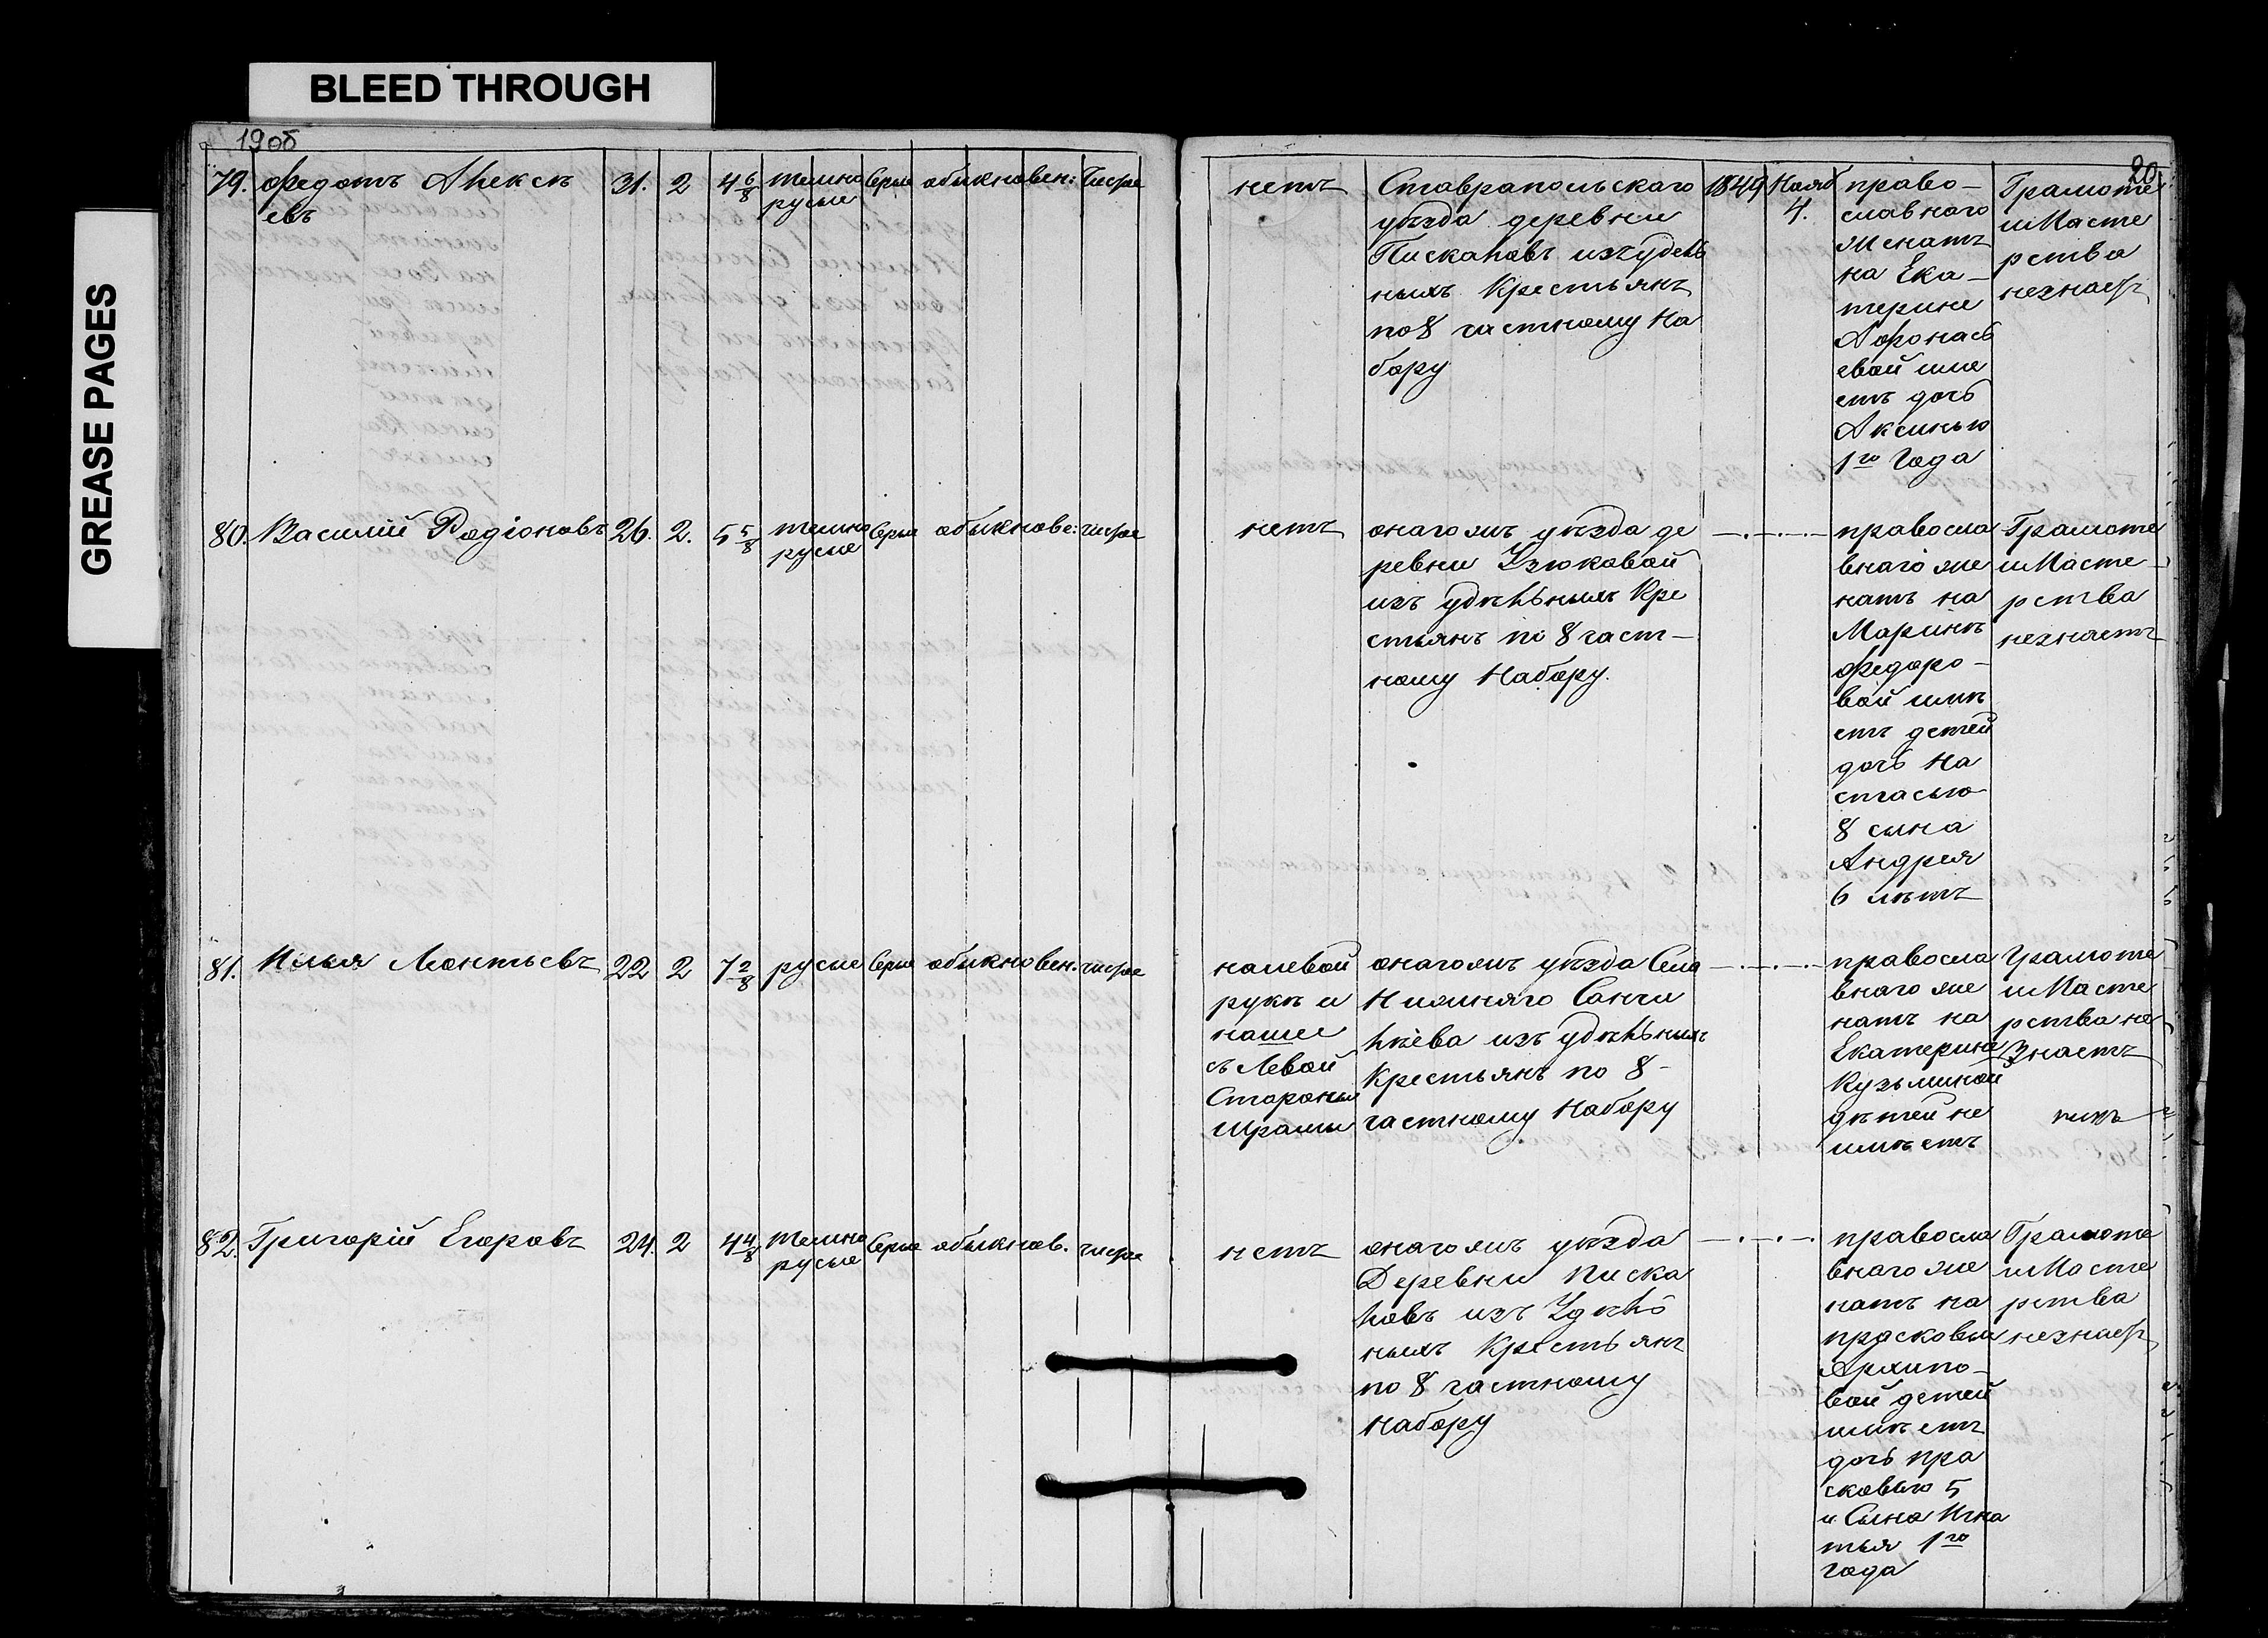 BLEED THROUGH
GREASE PAGES
19об
20
79. Федотъ Алексѣ
евъ
31. 2 4 6/8 темно
русые
Серые обыкновен: Чистое
нетъ
Ставрапольскаго
уѣзда деревни
Пискаловъ изъ удель
ныхъ Крестьянъ
по 8 частному На
бору
1844 Нояб
4.
право-
славнаго
женатъ
на Ека-
терине
Афонась
евой име
етъ дочь
Аксинью
1го Года
Грамоте
и Масте
рства
незнаетъ
80. Василій Радіоновъ 26. 2. 5 5/8 темно
русые
Серые обыкнове: чистое
нетъ
онагожъ уѣзда де
ревни Узюковой
изъ удѣльныхъ Кре
стьянъ по 8 част-
ному Набору.
—.—.—
правосла
внаго же
натъ на
Маринѣ
Федоро-
вой имѣ
етъ детей
дочь На
стасью
8 сына
Андрея
6 лѣтъ
Грамоте
и Масте
рства
незнаетъ
81. Илья Леонтьевъ 22 2 7 2/8 русые Серые обыкновен. чистое
налевой
рукѣ и
на шее
съ Левой
Стороны
Шрамы
онагожъ уѣзда Села
Нижняго Санчи
лѣева изъ удѣльныхъ
Крестьянъ по 8-
частному Набору
—.—.—
правосла
внаго же
натъ на
Екатерине
Кузьминой
дѣтей не
имѣетъ
Грамоте
и Масте
рства не
Знаетъ
82. Григорій Егоровъ 24. 2 4 4/8 Темно
русые
Серые обыкнов. чистое
нетъ
онагожъ уѣзда
Деревни Писка
ловъ изъ Удѣль
ныхъ Крестьянъ
по 8 частному
набору
—.—.—
правосла
внаго же
натъ на
прасковьи
Архипо-
вой детей
имѣетъ
дочь пра
сковью 5
и Сына Игна
тья 1го
года
Грамоте
и Масте
рства
незнаетъ